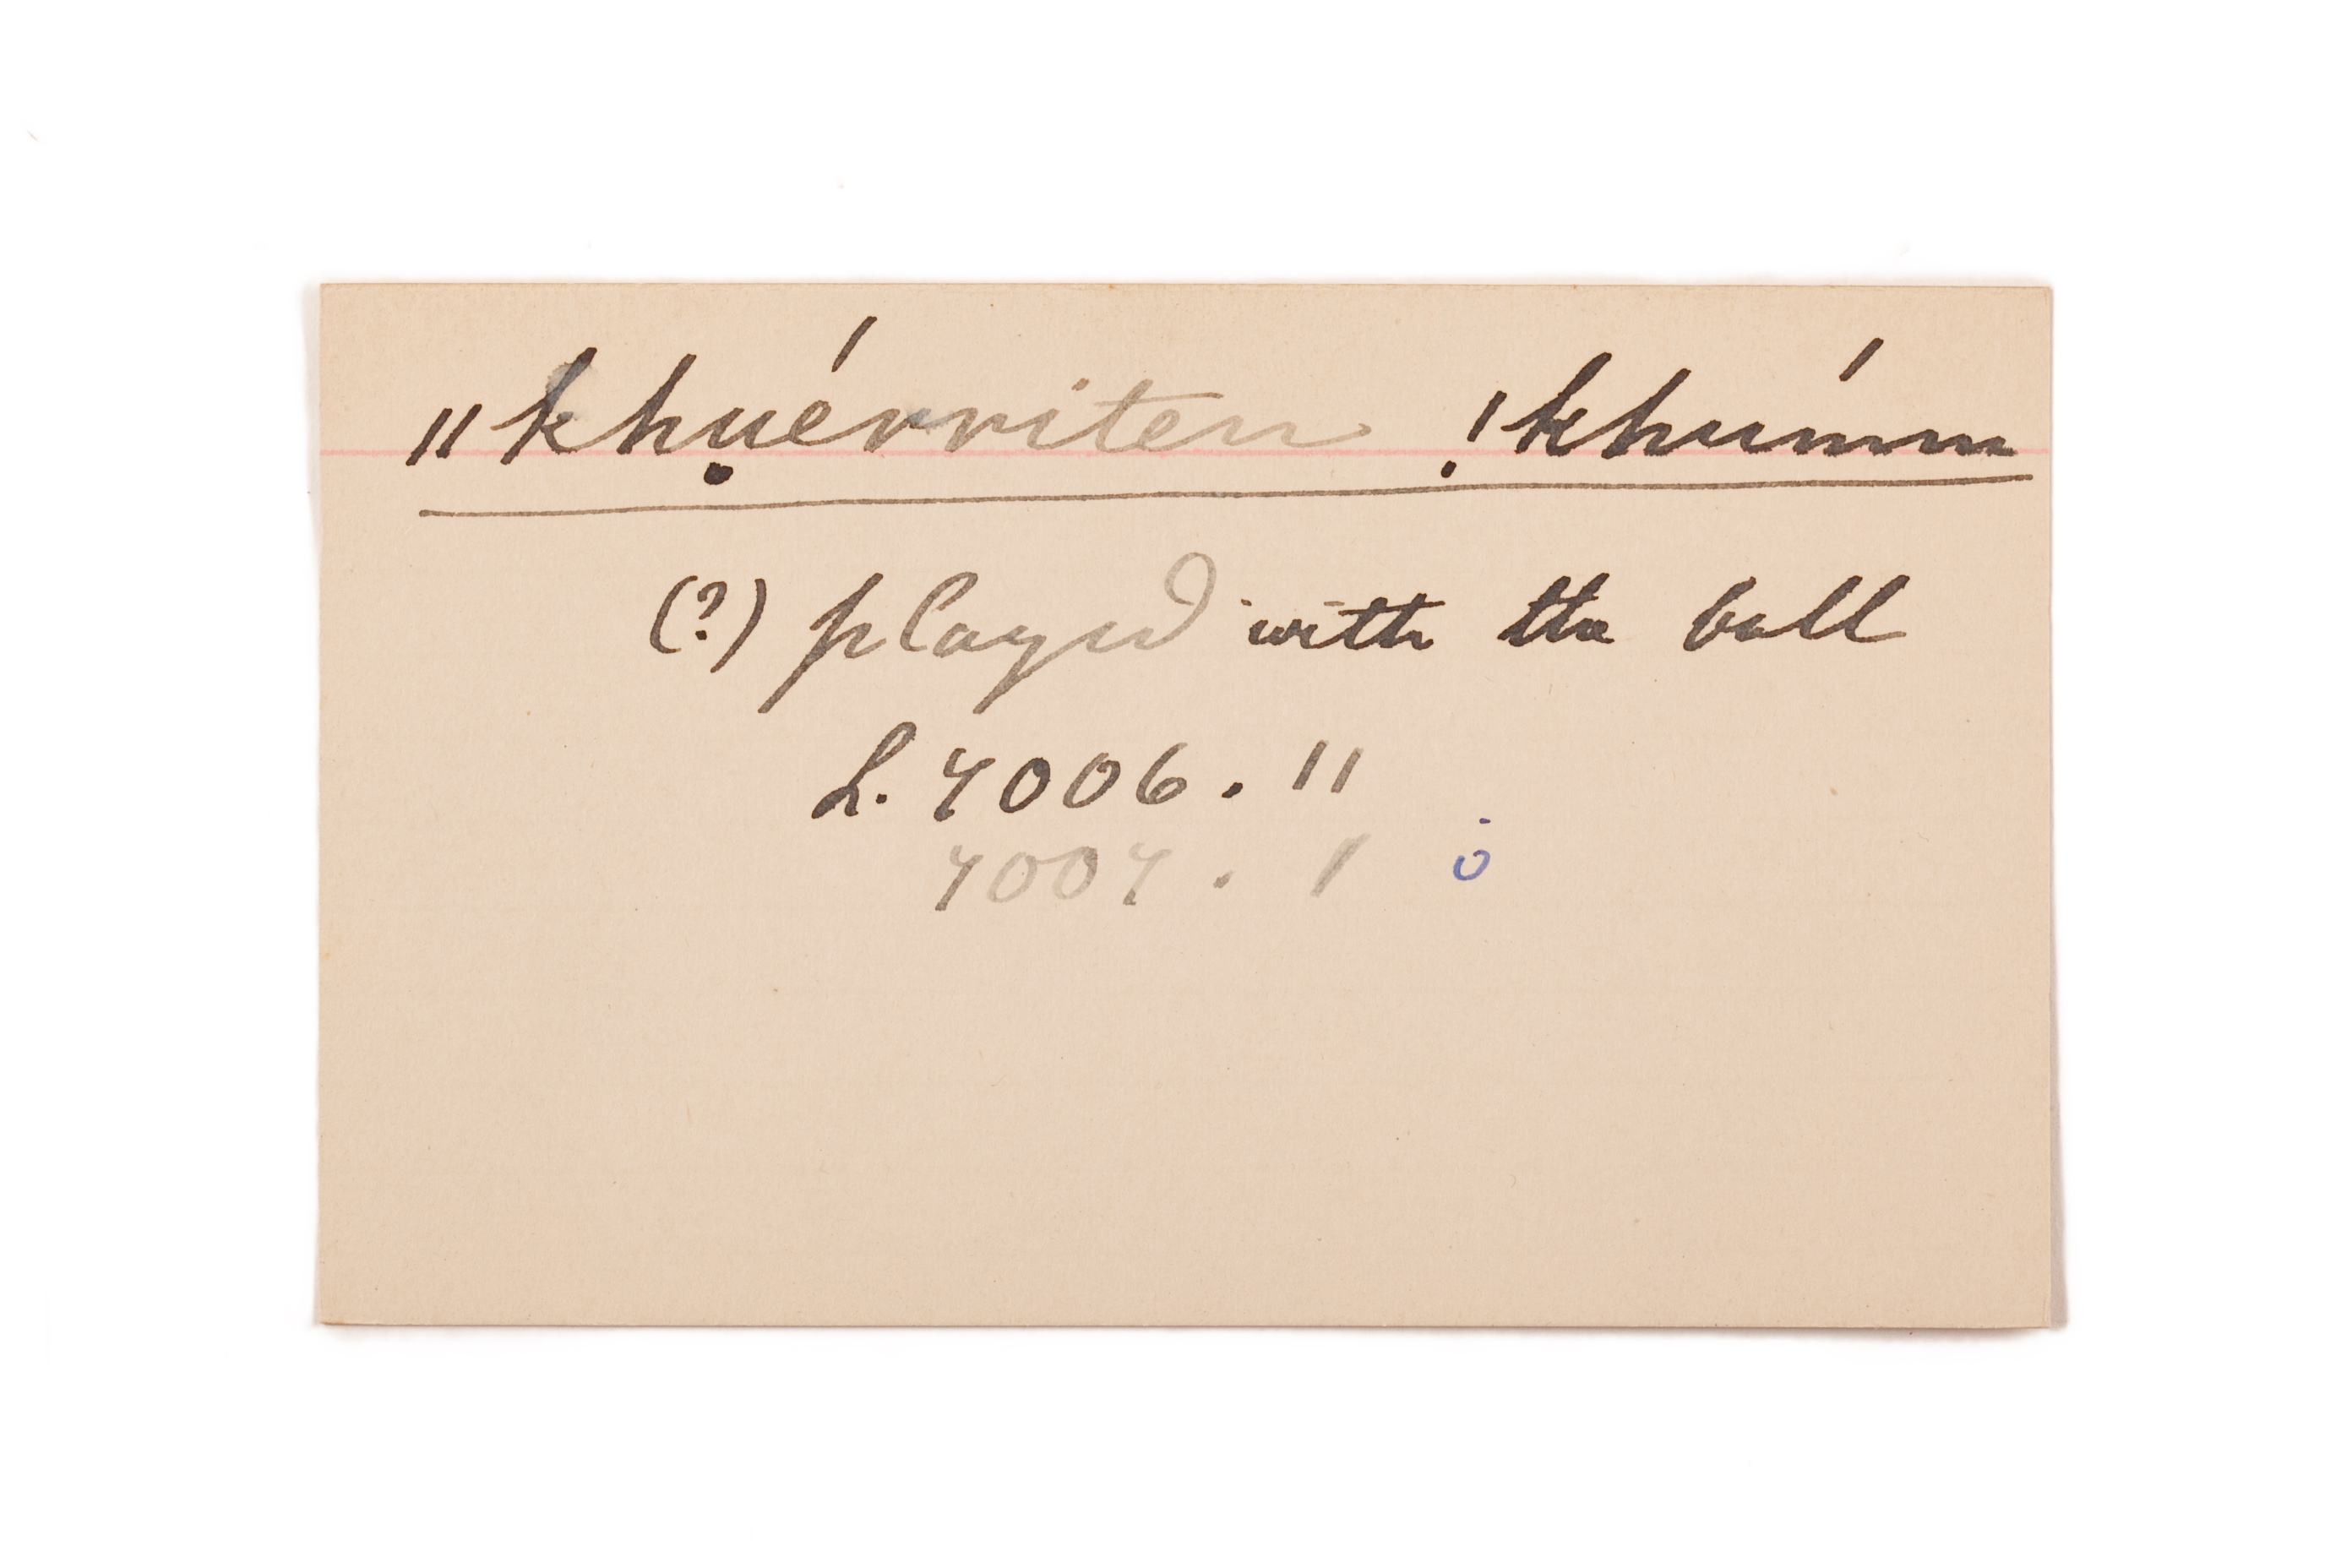 ǁkhụérriten ǃkhúmm
(?) played with the ball
L. 7006. 11
7007. 1